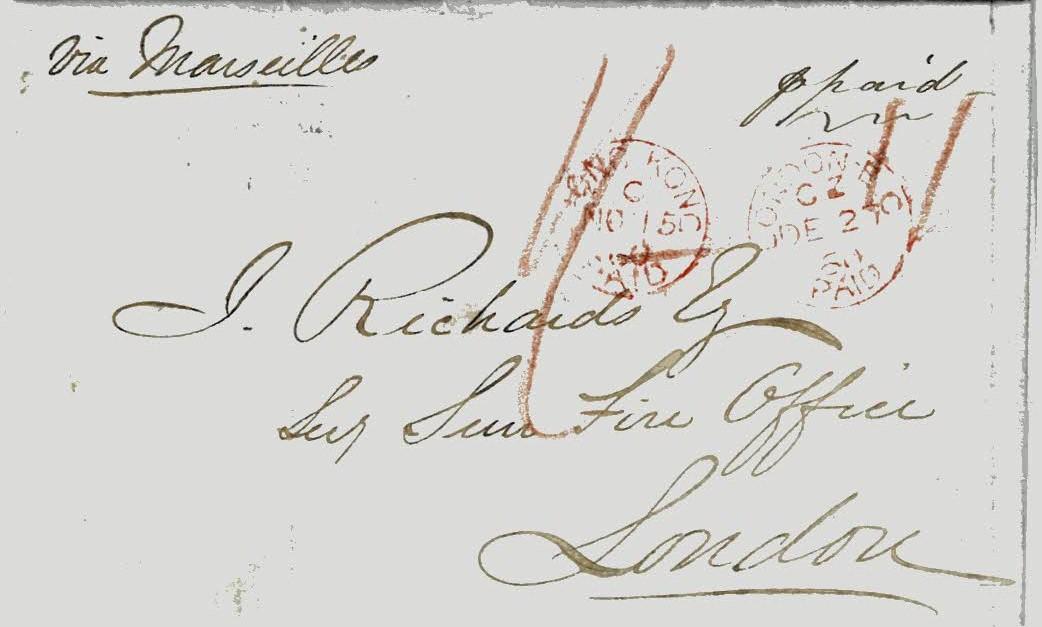 via Marseilles
ppaid
HONG KONG
C
NO 15
PAID
LONDON
CZ
DE 27
PAID
J. Richards Esq
Secy Sun Fire Office
London